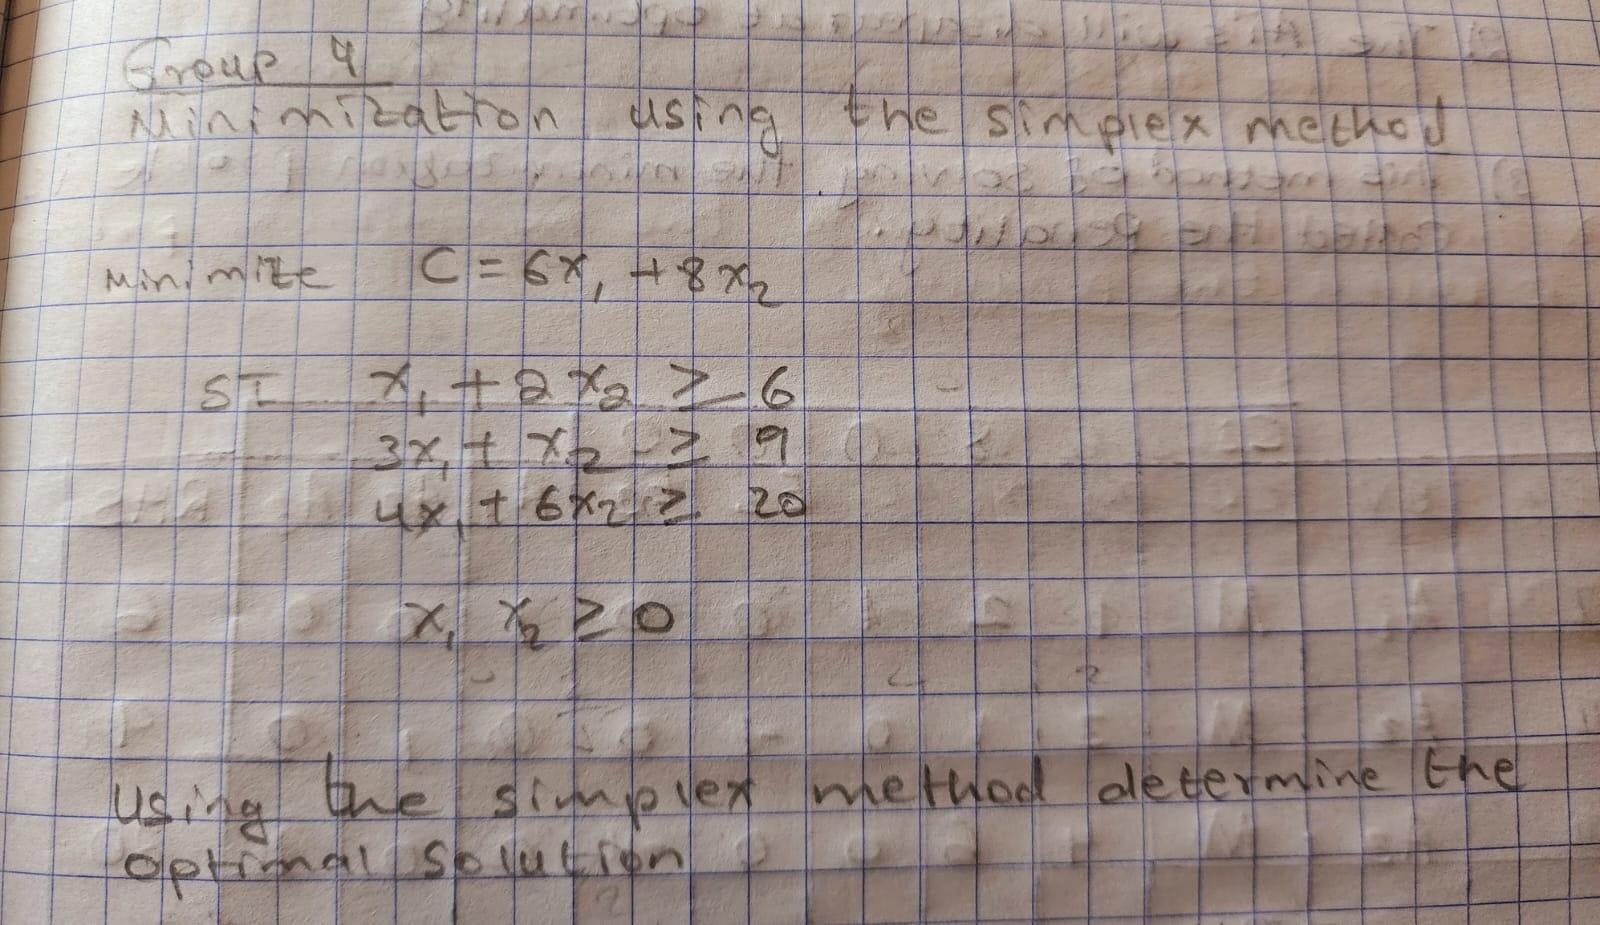 Group 4
Minimization using the simplex method
Minimize C = 6x₁ + 8x₂
ST x₁ + 2x₂ ≥ 6
3x₁ + x₂ ≥ 9
4x₁ + 6x₂ ≥ 20
x₁ x₂ ≥ 0
Using the simplex method determine the
optimal solution